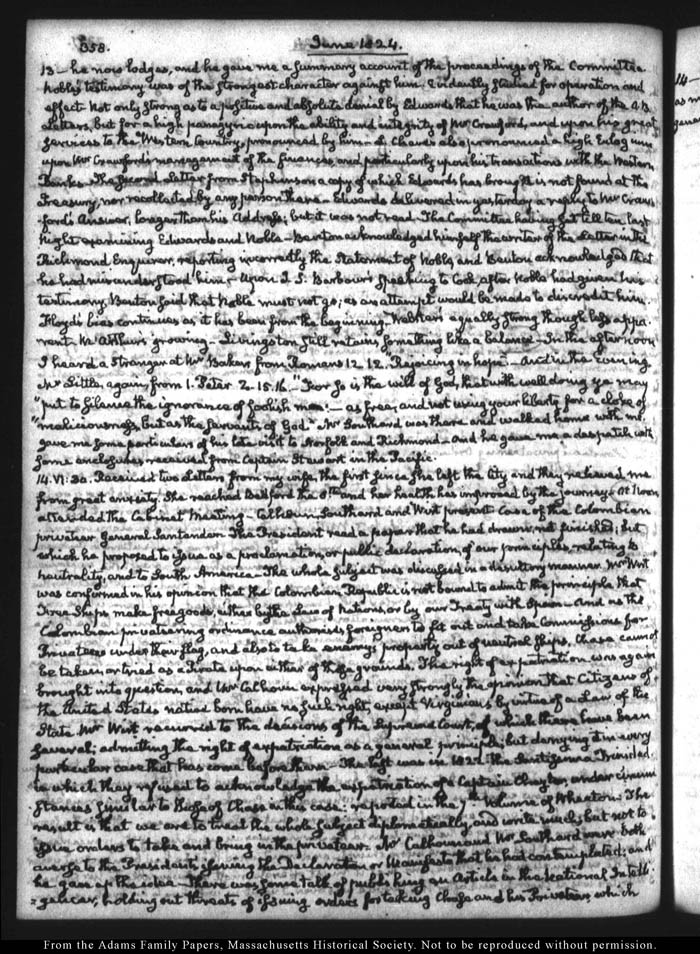 358.
June 1824.
13— he now lodges, and he gave me a summary account of the proceedings of the Committee
Noble's testimony was of the strongest character against him. Evidently studied for operation and
effect. Not only strong as to a positive and absolute denial by Edwards that he was the author of the A.B.
Letters, but for a high panegyric upon the ability and integrity of Mr Crawford, and upon his great
services to the Western Country, pronounced by him— also pronounced a high Eulogium
upon Mr Crawford's management of the finances, and particularly upon his transactions with the Western
Banks— The second Letter from Stephenson a copy of which Edwards has brought is not found at the
Treasury, nor recollected by any person there— Edwards delivered in yesterday a reply to Mr Craw-
ford's Answer, longer than his Address; but it was not read. The Committee having sat till ten last
Night examining Edwards and Noble— Benton acknowledged himself the writer of the Letter in the
Richmond Enquirer, reporting incorrectly the Statement of Noble, and Benton acknowledged that
he had misunderstood him,— Upon J. S. Barbour's speaking to Cook after Noble had given his
testimony, Benton said that Noble must not go; as an attempt would be made to discredit him.
Floyd's bias continues as it has been from the beginning. Webster's equally strong though less appa-
rent. McArthur's growing— Livingston still retains something like a balance— In the afternoon
I heard a stranger at Mr Baker's from Romans 12. 12. "Rejoicing in hope"— And in the Evening
Mr Little, again from 1. Peter 2. 15. 16. "For so is the will of God, that with well doing ye may
"put to silence the ignorance of foolish men:— as free, and not using your liberty for a cloke of
"maliciousness, but as the servants of God." Mr Southard was there and walked home with me.
gave me some particulars of his late visit to Norfolk and Richmond— And he gave me a despatch with
some enclosures received from Captain Stewart in the Pacific.
14. VI: 30. Received two Letters from my wife, the first since she left the City and they relieved me
from great anxiety. She reached Bedford the 8th and her health has improved by the journey— At Noon
attended the Cabinet Meeting— Calhoun, Southard and Wirt present. Case of the Colombian
privateer General Santander. The President read a paper that he had drawn, not finished; but
which he proposed to issue as a proclamation, or public declaration, of our principles, relating to
neutrality, and to South America— The whole subject was discussed in a desultory manner. Mr Wirt
was confirmed in his opinion that the Colombian Republic is not bound to admit the principle that
free ships make free goods, either by the Law of Nations or by our Treaty with Spain— And as the
Colombian privateering ordinance authorises foreigners to fit out and take Commissions for
Privateers under their flag, and also to take enemy's property out of neutral ships, Chase cannot
be taken, or tried as a Pirate upon either of these grounds. The right of expatriation was again
brought into question, and Mr Calhoun expressed very strongly the opinion that Citizens of
the United States native born have no such right, except Virginians by virtue of a Law of the
State. Mr Wirt recurred to the decisions of the Supreme Court, of which there have been
several; admitting the right of expatriation as a general principle; but denying it in every
particular case that has come before them— The last was in 1822. The Santissima Trinidad,
in which they refused to acknowledge the expatriation of a Captain Chaytor, under circum
stances similar to those of Chase in this case: reported in the 7th Volume of Wheaton. The
result is that we are to treat the whole subject diplomatically, and write much; but not to
issue orders to take and bring in the privateer— Mr Calhoun and Mr Southard were both
averse to the President's issuing the Declaration or Manifesto that he had contemplated; and
he gave up the idea— There was some talk of publishing an Article in the National Intelli
=gencer, holding out threats of issuing orders for taking Chase and his Privateer, which
14—
From the Adams Family Papers, Massachusetts Historical Society. Not to be reproduced without permission.